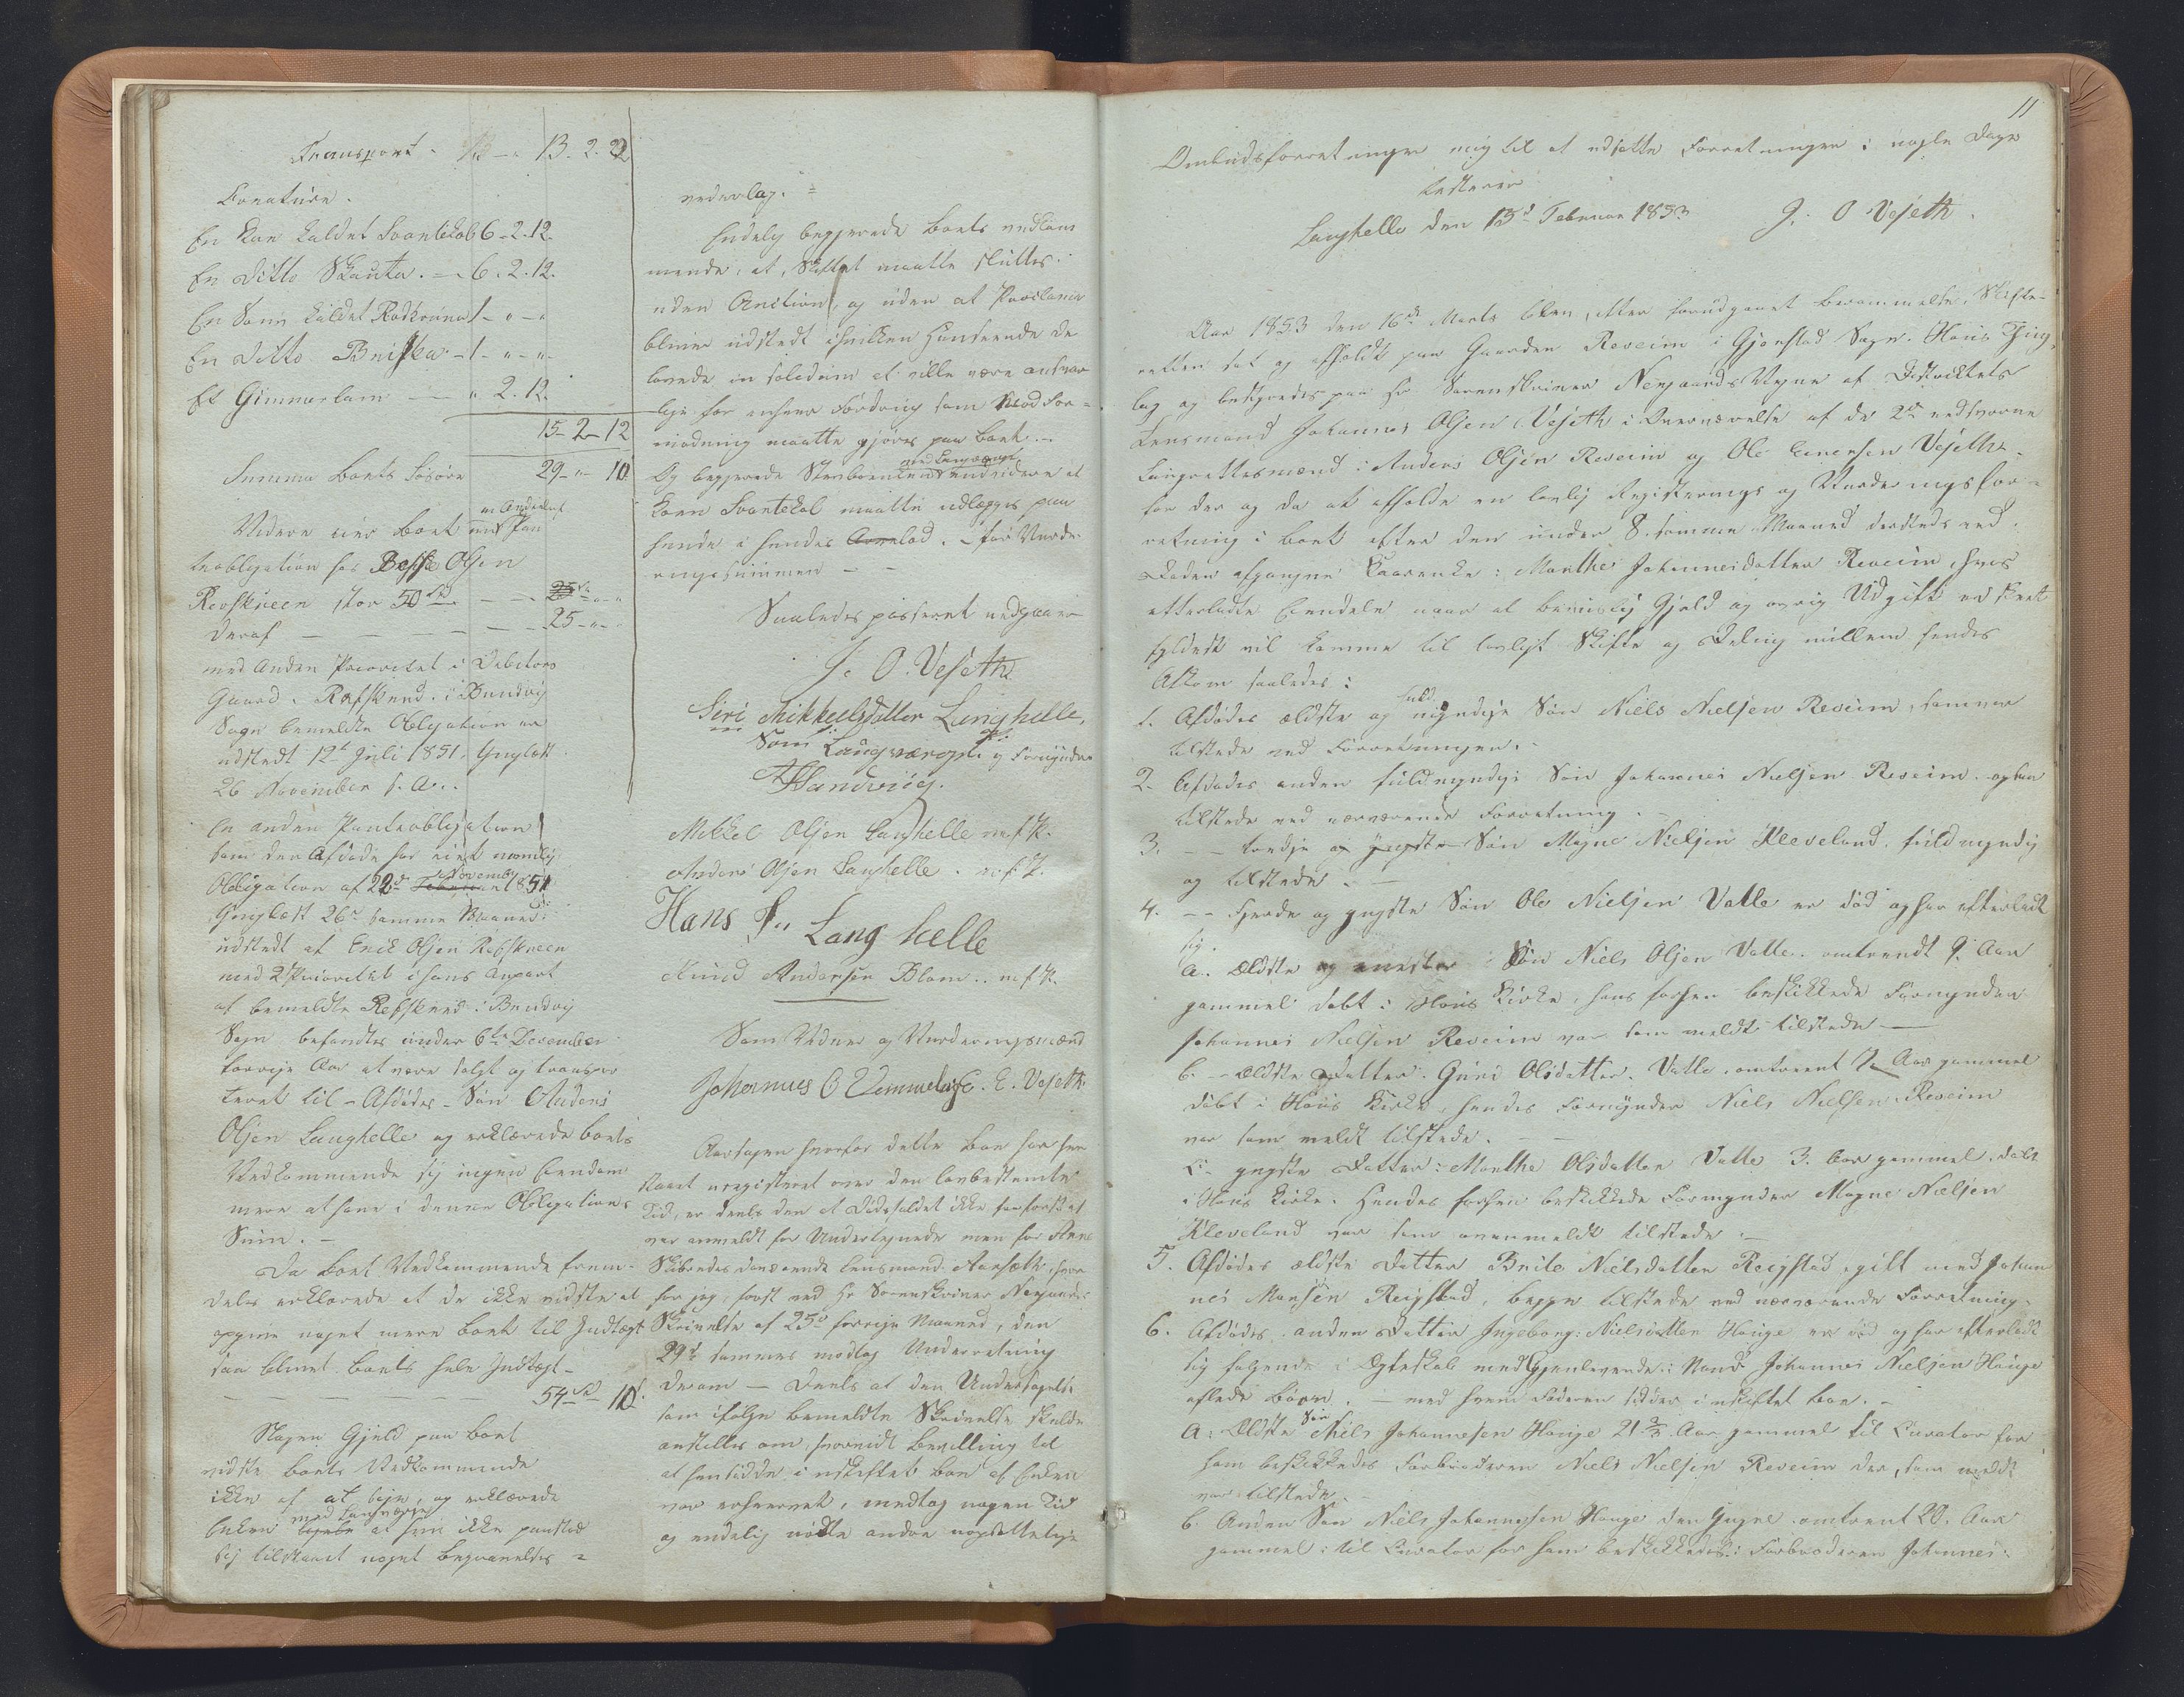 Transport - 13. 2. 22
Creature.
En Koe kaldet Svartekol 6 - 2. 12.
En ditto Skauta. - 6. 2. 12.
En Sau kaldet Rødkruna 1 - " - "
En ditto Bris̶ka - 1 - " - "
Et Gimmerlam — " 2. 12.
15 - 2 - 12
Summa Boets Løsøre 29 - " - 10
Videre eier Boet en Andeel af en Pan
teobligation hos Olsen
Refskreen stor 50 Sp. — 25 " - "
deraf — — — — 25 - " -
med anden Prioritet i Debitors
Gaard Refskred i Bruvig
Sogn bemeldte Obligation er
udstedt 12te Juli 1851, thinglæst
26 November s. A.
En anden Panteobligation
som den Afdøde har eiet nemlig
Obligation af 22de November 1851
thinglæst 26de samme Maaned
udstedt af Erik Olsen Refskreen
med 2 Prioritet i hans Anpart
af bemeldte Refskred i Bruvig
Sogn befandtes under 6te December
forrige Aar at være solgt og transpor
teret til Afdødes Søn Anders
Olsen Langhelle og erklærede Boets
Vedkommende sig ingen Eiendom
mere at have i denne Obligations
Sum. -
Da Boets Vedkommende frem-
deles erklærede at de ikke vidste at
opgive noget mere Boet til Indtægt
saa blev Boets hele Indtægt -
— — — — 54 Sp - 10 s.
Nogen Gjeld paa Boet
vidste Boets Vedkommende
ikke af at sige, og erklærede
Enken med Laugværge at hun ikke paastod
sig tilstaaet noget Begravelses =
vederlag. =
Endelig begjerede Boets vedkom
mende, at Skiftet maatte sluttes
uden Auction, og uden at Proclama
bliver udstedt i hvilken Henseende de
lovede in solidum at ville være ansvar
lige for enhver Fordring som mod For =
modning maatte gjøres paa Boet. -
Og begjerede Stervboenken med Laugværge endvidere at
Koen Svartekol maatte udlægges paa
hende i hendes lod. - for Vurde-
ringssummen - -
Saaledes passeret vedgaaer
J. O. Vejseth
Siri Mikkelsdatter Langhelle,
Som Laugværge og Formynder
Mikkel Olsen Langhelle m. f. P.
Anders Olsen Langhelle. m. f. P.
Hans Langhelle
Knud Andersen Blom .. m. f. P.
Som Vidner og Vurderingsmænd
Johannes O. E. Vejseth.
Aarsagen hvorfor dette Boe har hen
staaet uregistreret over den lovbestemte
Tid, er deels den at Dødsfaldet ikke
var anmeldt for Undertegnede men for Arne
Skibredes daværende Lensmand Aarseth, hvor
for jeg, først ved Hr Sorenskriver Neegaards
Skrivelse af 25de forrige Maaned, den
29de sammes modtog Underretning
derom — Deels at den Undersøgelse
som ifølge bemeldte Skrivelse skulde
anstilles om, hvorvidt Bevilling til
at hensidde i uskiftet Boe af Enken
var erhvervet, medtog nogen Tid
og endelig nødte andre uopsettelige
11
Ombudsforretninger mig til at udsætte Forretningen i nogle Dage
testerer
Langhelle den 13de Februar 1853 J. O Vejseth.
Aar 1853 den 16de Marts blev, efter forudgaaet Berammelse, Skifte-
retten sat og afholdt paa Gaarden Reveim i Gjerstad Sogn. Hous Thing-
lag og bestyredes paa Hr Sorenskriver Neegaards Vegne af Districtets
Lensmand Johannes Olsen Vejseth i Overværelse af de 2de eedsvorne
Laugrettesmænd: Anders Olsen Reveim og Ole Enersen Vejseth
for der og da at afholde en lovlig Registrerings og Vurderingsfor =
retning i Boet efter den under 8. samme Maaned dersteds ved
Døden afgangne Kaarenke: Marthe Johannesdatter Reveim, hvis
efterladte Eiendele naar al beviislig Gjeld og øvrig Udgift er skeet
fyldest vil komme til lovligt Skifte og Deling mellem hendes
Afkom saaledes:
1. Afdødes ældste og fuldmyndige Søn Niels Nielsen Reveim, som var
tilstede ved Forretningen.
2. Afdødes anden fuldmyndige Søn Johannes Nielsen Reveim. og han
tilstede ved nærværende Forretning.
3. — tredje og yngste Søn Mogne Nielsen Kleveland, fuldmyndig
og tilstede. -
4. — Fjerde og yngste Søn Ole Nielsen Valle er død og har efterladt
sig.
a. Ældste og eneste Søn Niels Olsen Valle. omtrendt 9. Aar
gammel døbt i Hous Kirke, hans forhen beskikkede Formynder
Johannes Nielsen Reveim var som meldt tilstede —
b. — Ældste Datter: Guri Olsdatter. Valle, omtrent 7 Aar gammel
døbt i Hous Kirke, hendes Formynder Niels Nielsen Reveim
var som meldt tilstede. —
c. yngste Datter: Marthe Olsdatter Valle 3. Aar gammel, døbt
i Hous Kirke. Hendes forhen beskikkede Formynder Mogne Nielsen
Kleveland var som ovenmeldt tilstede. -
5. Afdødes ældste Datter Brite Nielsdatter Reigstad, gift med Johan
nes Monsen Reigstad, begge tilstede ved nærværende Forretning.
6. Afdødes anden Datter Ingeborg Nielsdatter Houge er død og har efterladt
sig følgende i Egteskab med Gjenlevende Mand Johannes Nielsen Houge
aflede Børn. — med hvem Faderen sidder i uskiftet Boe. -
a. Ældste Søn Niels Johannesen Houge 21 2/3 Aar gammel til Curator for
ham beskikkedes Farbroderen Niels Nielsen Reveim der, som meldt
var tilstede. -
b. Anden Søn Niels Johannesen Houge den Yngre omtrent 20. Aar
gammel: til Curator for ham beskikkedes Farbroderen Johannes